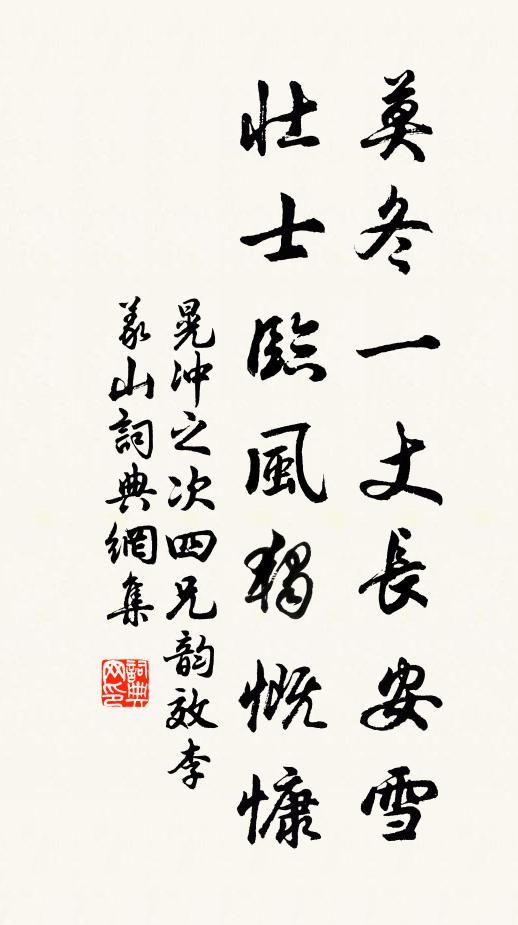 莫冬一丈長安雪
壯士臨風獨慨慷
晁沖之次四兄韵效李
義山詞典網集
詞典網印